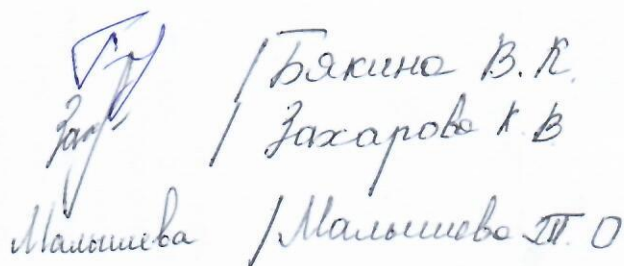 / Бякина В. К.
Зах / Захарова К. В
Малышева / Малышева Т. О